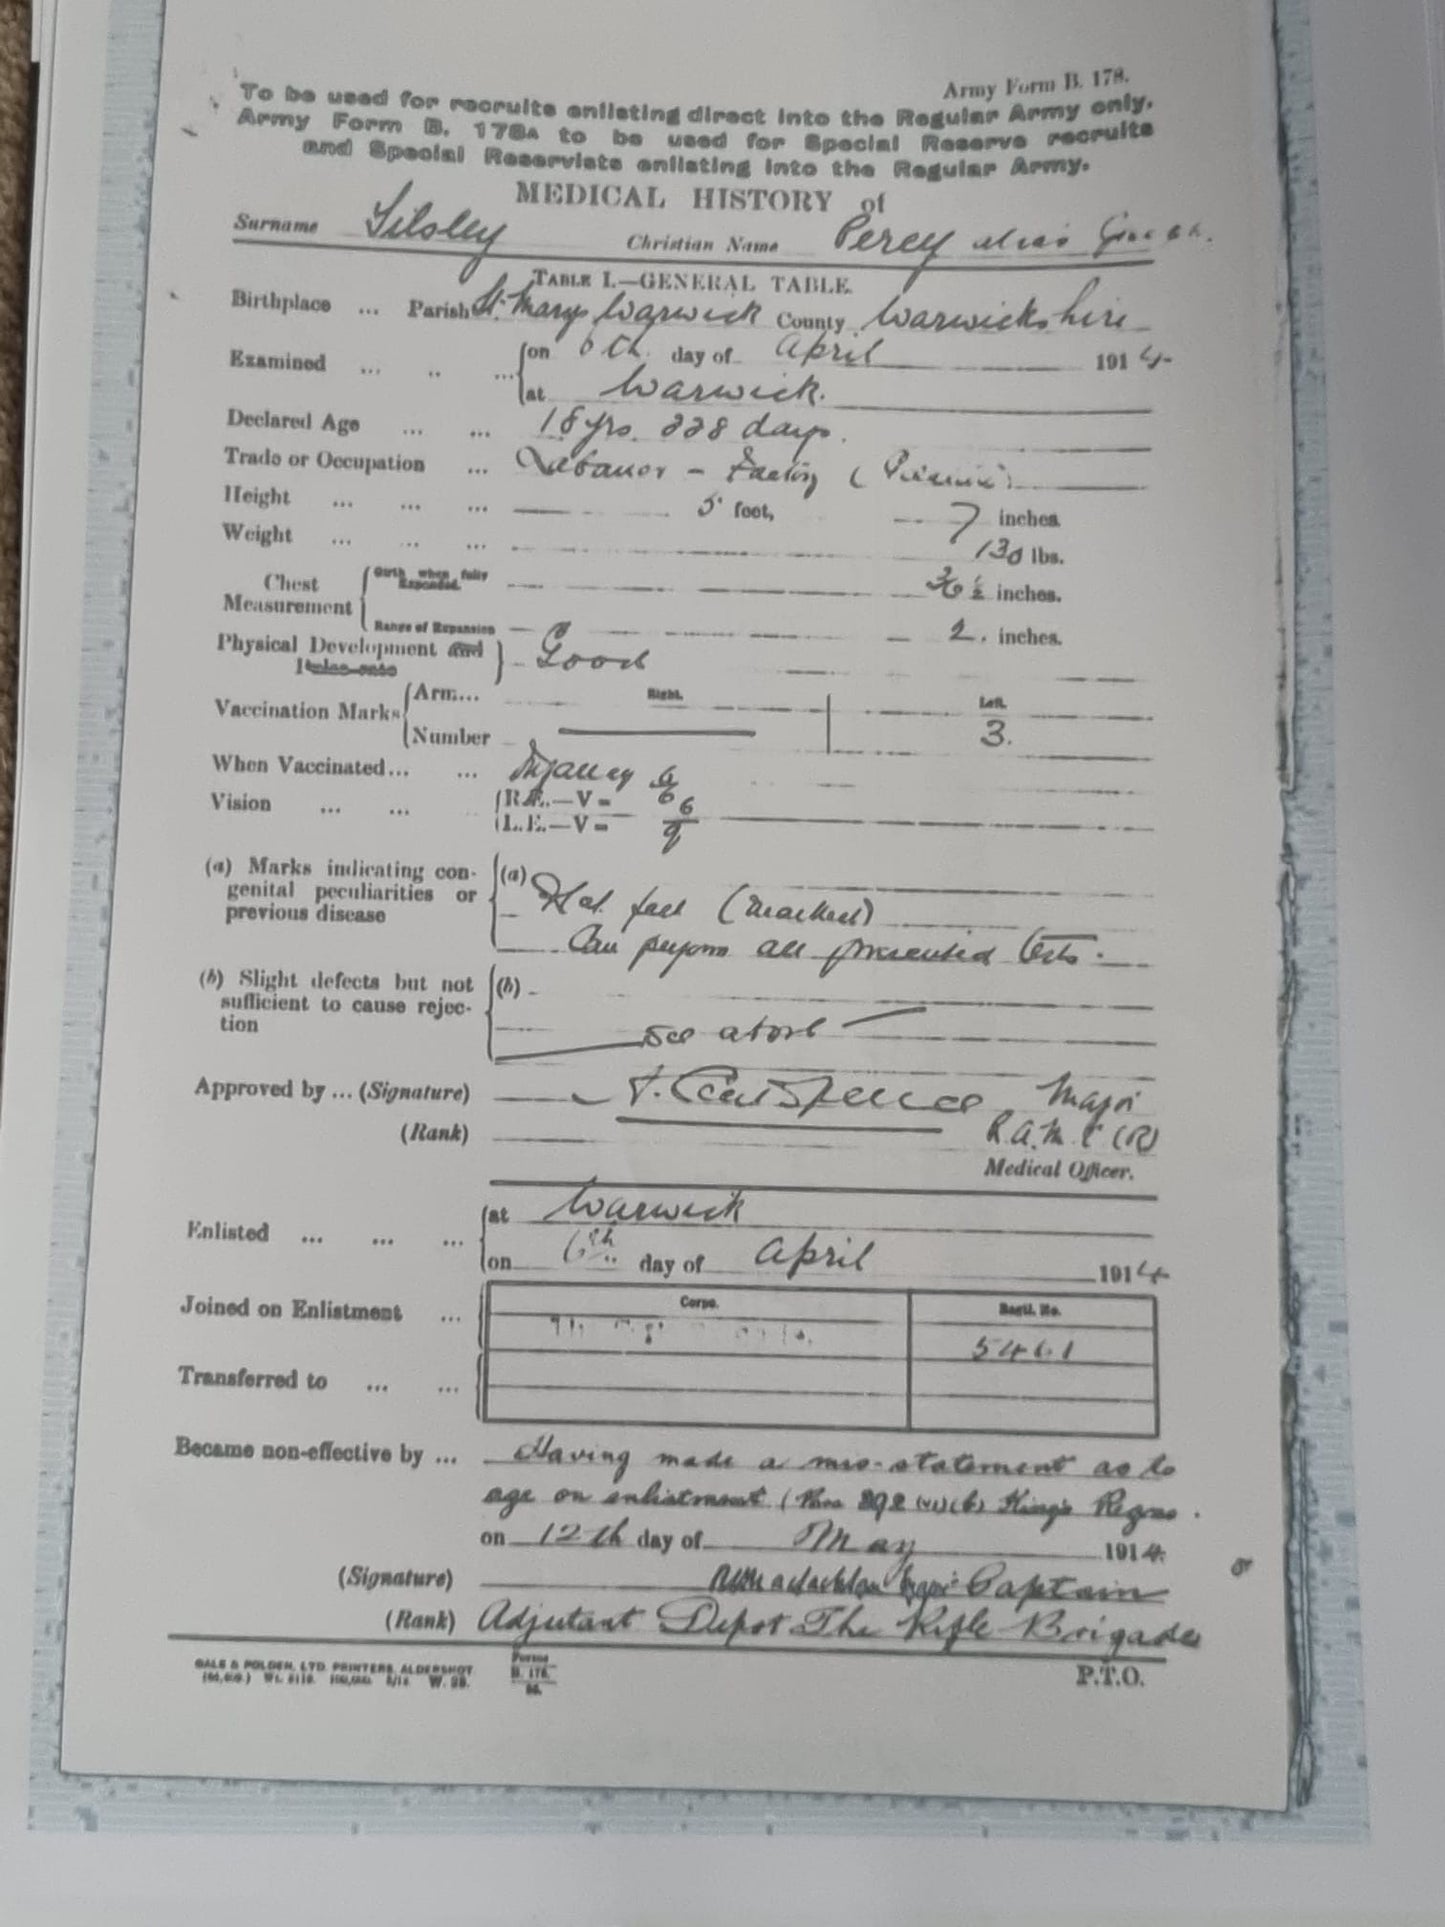 Army Form B. 178.
To be used for recruits enlisting direct into the Regular Army only.
Army Form B. 178A to be used for Special Reserve recruits
and Special Reservists enlisting into the Regular Army.
MEDICAL HISTORY of
Surname Silsley Christian Name Percy alias
TABLE I.—GENERAL TABLE.
Birthplace ... Parish St. Marys Warwick County Warwickshire
Examined ... on 6th day of April 1914
at Warwick.
Declared Age ... ... 18 yrs. 228 days.
Trade or Occupation ... Labourer - Factory
Height ... ... ... 5 feet, 7 inches
Weight ... ... ... 130 lbs.
Chest Measurement Girth when fully Expanded 36½ inches.
Range of Expansion 2. inches.
Physical Development and Good
Vaccination Marks Arm... Right. Left.
Number 3.
When Vaccinated... ... Infancy
Vision ... ... R.E.—V= 6/6
L.E.—V= 6/9
(a) Marks indicating con- (a)
genital peculiarities or Flat feet (marked)
previous disease
Can perform all prescribed tests.
(b) Slight defects but not (b) -
sufficient to cause rejec-
tion see above
Approved by ... (Signature) Major
(Rank) R.A.M.C (R)
Medical Officer.
Enlisted ... ... ... at Warwick
on 6th day of April 1914
Corps. Regtl. No.
Joined on Enlistment ... 5461
Transferred to ... ...
Became non-effective by ... Having made a mis-statement as to
age on enlistment (Para 392 (b) King's Regns.
on 12th day of May 1914.
(Signature) Captain
(Rank) Adjutant Depot The Rifle Brigade
GALE & POLDEN, LTD. PRINTERS, ALDERSHOT
Forms
B. 178.
P.T.O.